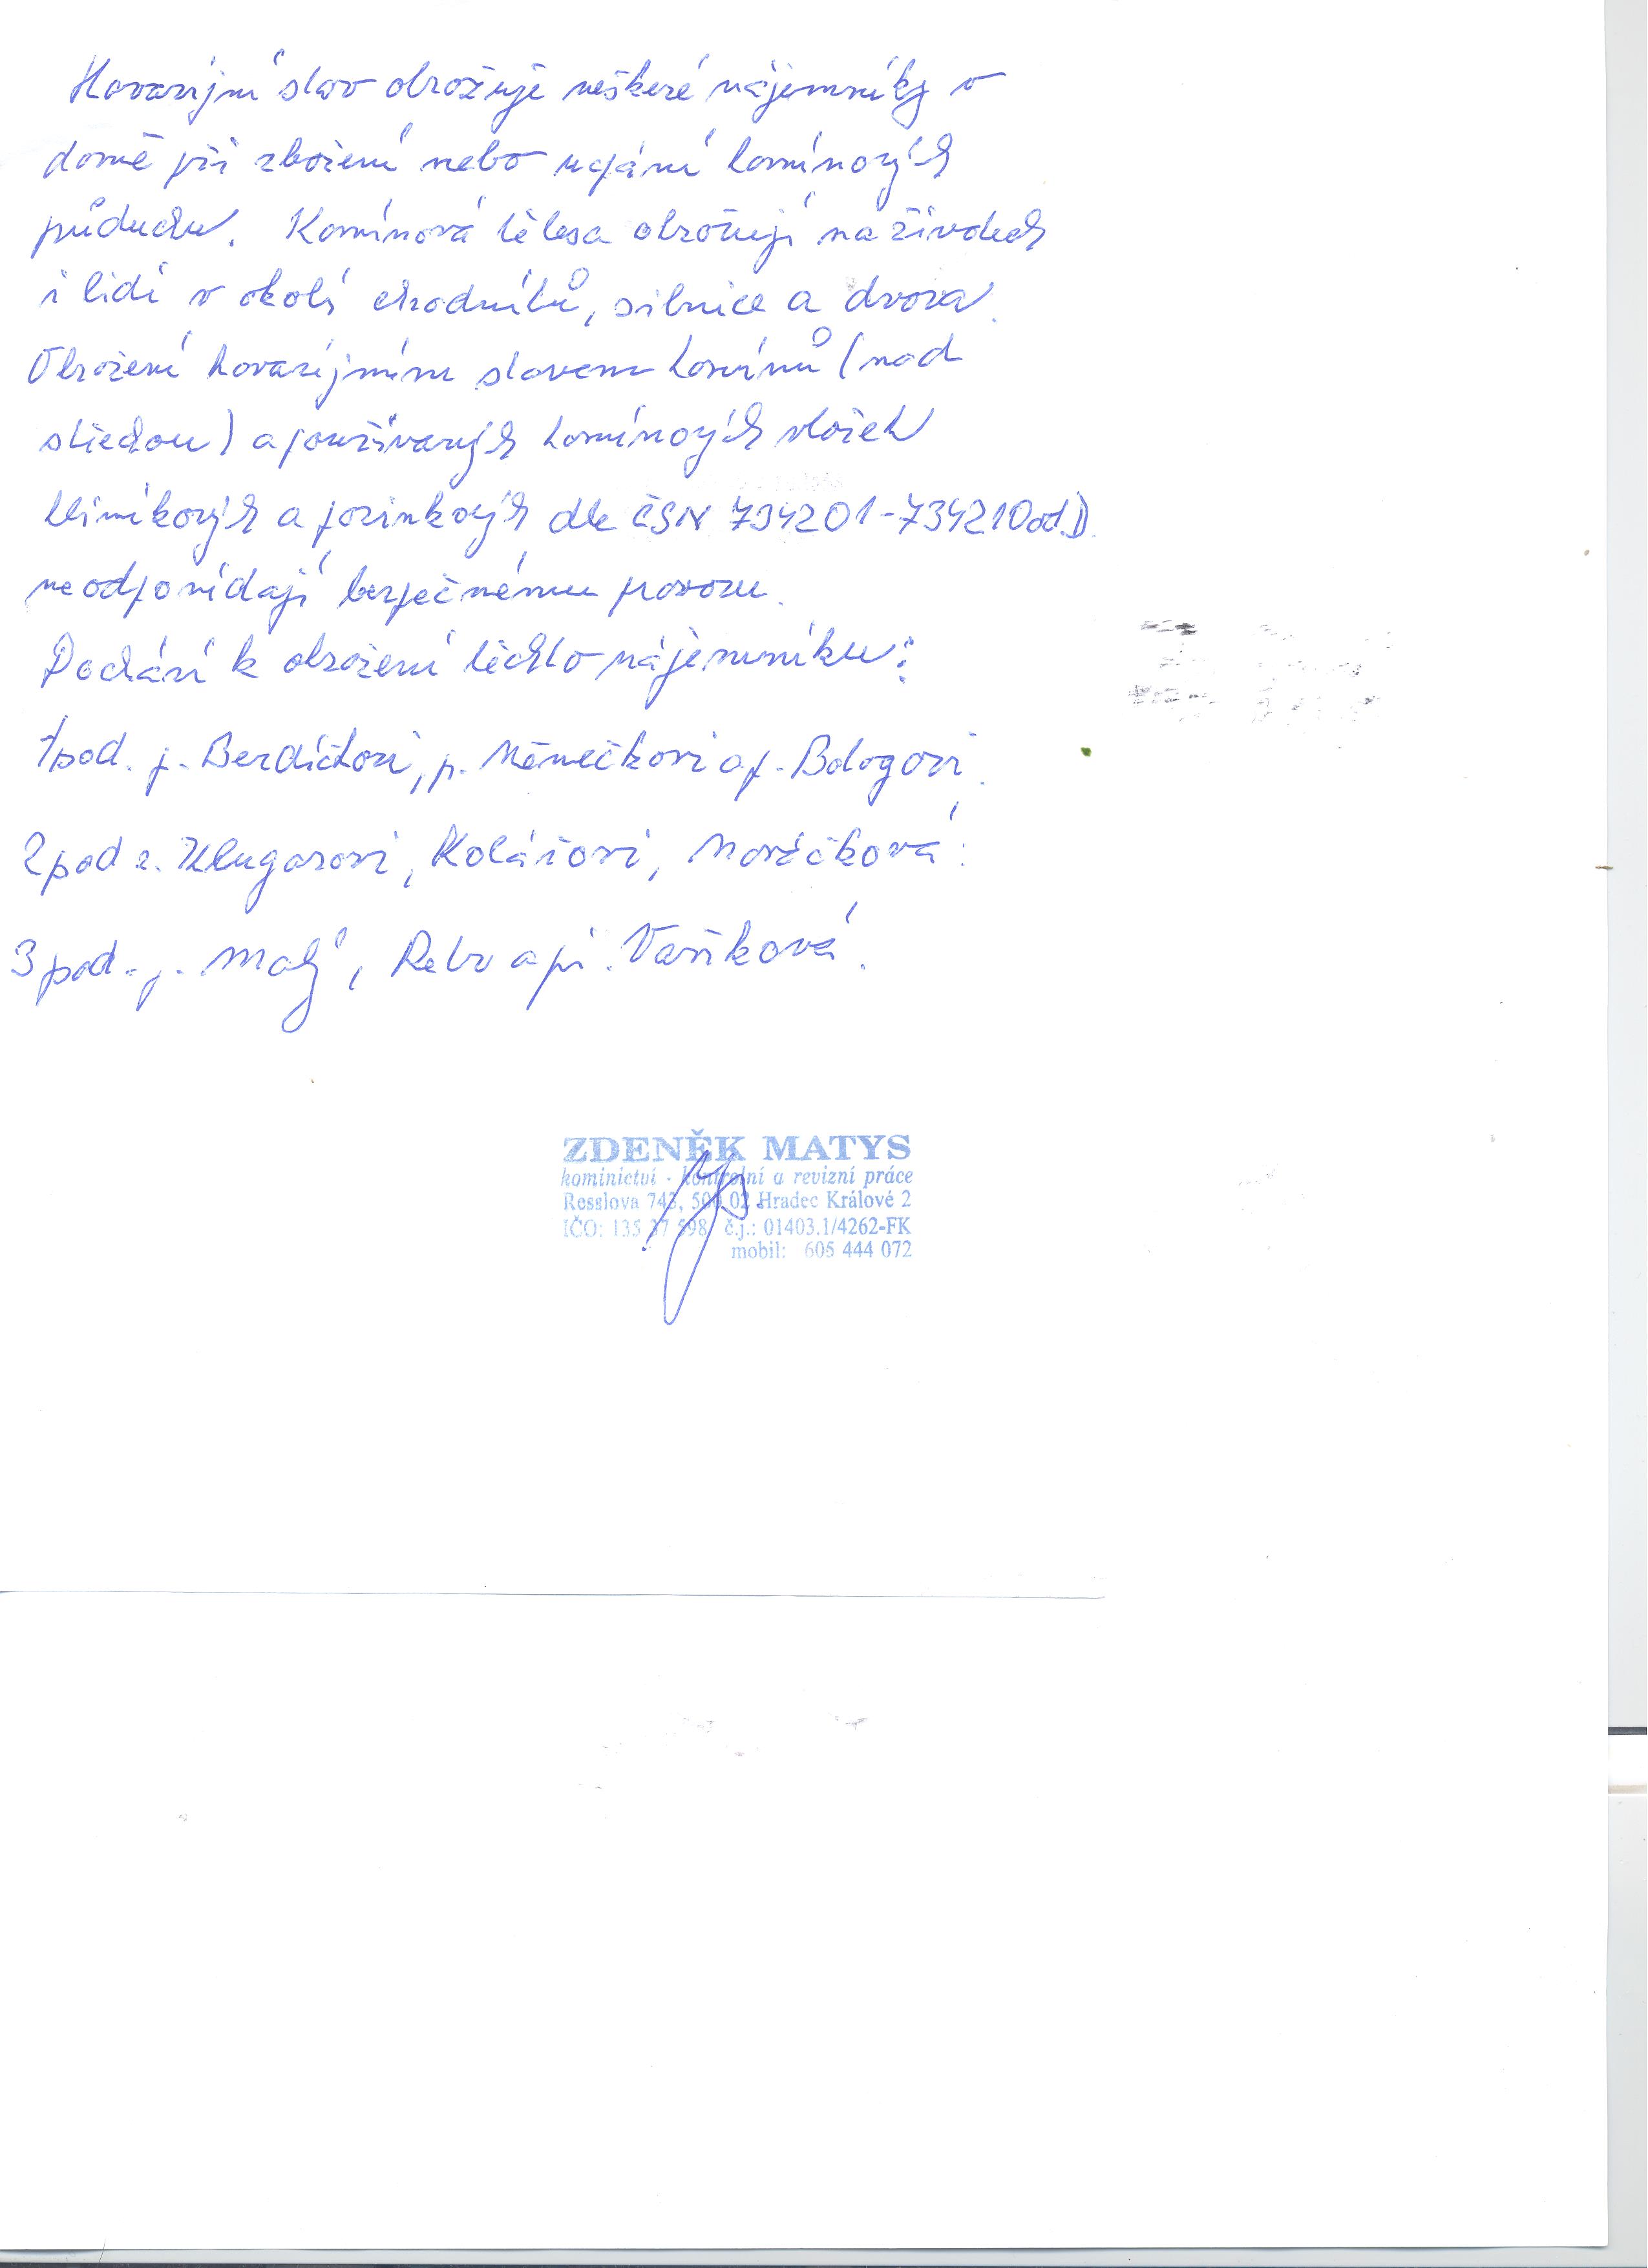 Havarijní stav ohrožuje veškeré nájemníky v
domě při zboření nebo ucpání komínových
průduchu. Komínová tělesa ohrožují na životech
i lidi v okolí chodníků, silnice a dvora.
Ohrožení havarijním stavem komínů (nad
střechou) a používaných komínových vložek
hliníkových a pozinkových dle ČSN 734201-734210 od.D.
neodpovídají bezpečnému provozu.
Dochází k ohrožení těchto nájemníku:
1pod. p. Berdichovi, p. Němečkovi a p. Balogovi.
2pod r. Klugarovi, Kolářovi, Nováčková.
3pod. p. Malý, Rehr a pí. Vaňková.
ZDENĚK MATYS
kominictví - kontrolní a revizní práce
Resslova 743, 500 02 Hradec Králové 2
IČO: 135 37 598 č.j.: 01403.1/4262-FK
mobil: 605 444 072